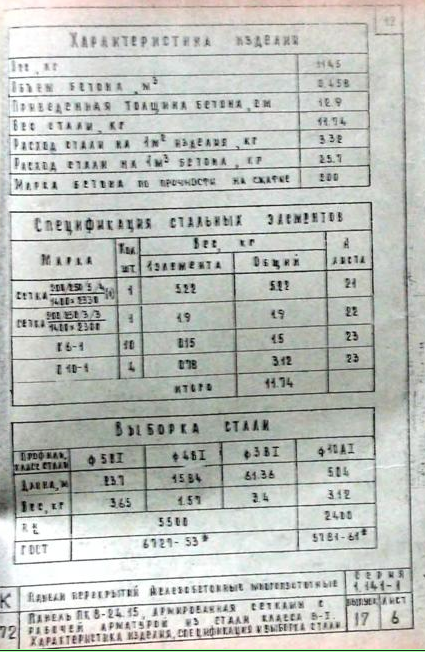 Характеристика изделия
Вес, кг 1145
Объем бетона, м³ 0.458
Приведенная толщина бетона, см 12.9
Вес стали, кг 11.74
Расход стали на 1м² изделия, кг 3.32
Расход стали на 1м³ бетона, кг 25.7
Марка бетона по прочности на сжатие 200
Спецификация стальных элементов
Марка Кол. шт. Вес, кг № листа
1 элемента Общий
Сетка 200/250/5/4 1400×2330 1 5.22 5.22 21
Сетка 200/250/3/3 1400×2300 1 1.9 1.9 22
К6-1 10 0.15 1.5 23
П10-1 4 0.78 3.12 23
Итого 11.74
Выборка стали
Профиль, класс стали ф5ВI ф4ВI ф3ВI ф10АI
Длина, м 23.7 15.84 61.36 5.04
Вес, кг 3.65 1.57 3.4 3.12
5500 2400
ГОСТ 6727-53* 5781-61*
К Панели перекрытий железобетонные многопустотные Серия 1.141-1
72 Панель ПК8-24.15, армированная сетками с Выпуск Лист
рабочей арматурой из стали класса В-I. 17 6
Характеристика изделия, спецификация и выборка стали